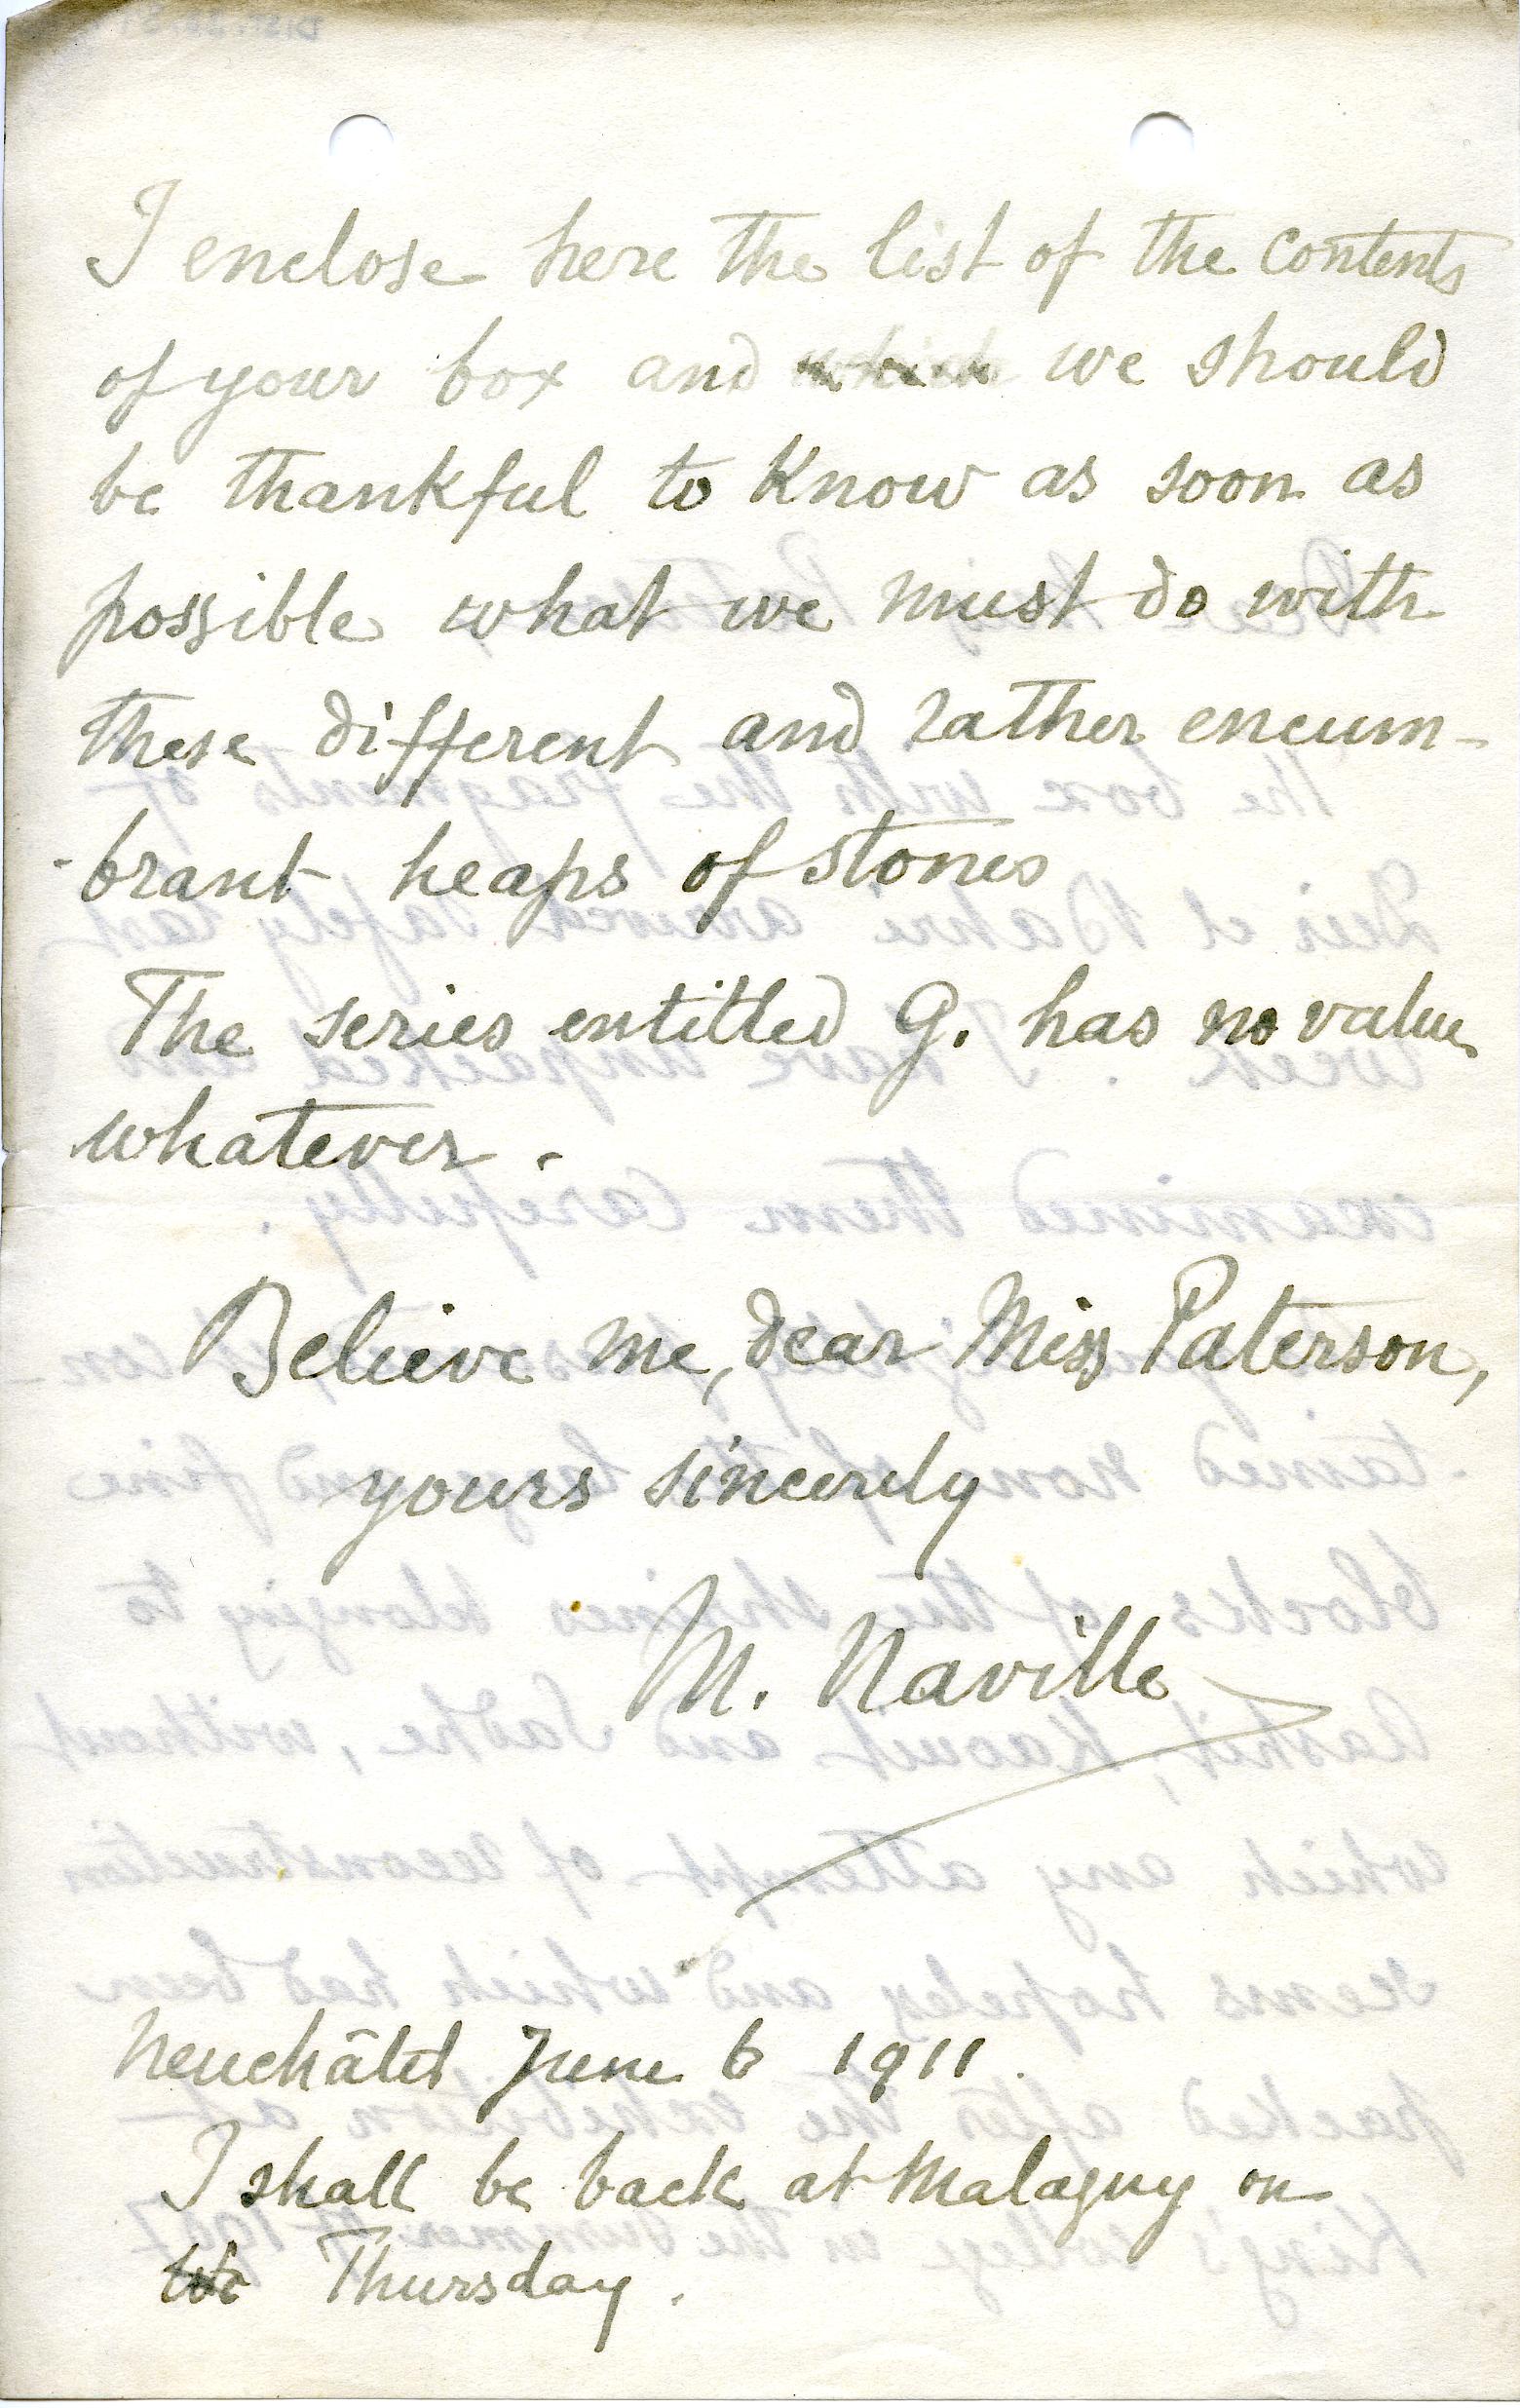 I enclose here the list of the contents
of your box and which we should
be thankful to know as soon as
possible what we must do with
these different and rather encum-
-brant heaps of stones
The series entitled G. has no value
whatever.
Believe me, dear Miss Paterson,
yours sincerely
M. Naville
Neuchâtel June 6 1911.
I shall be back at Malagny on
We Thursday.